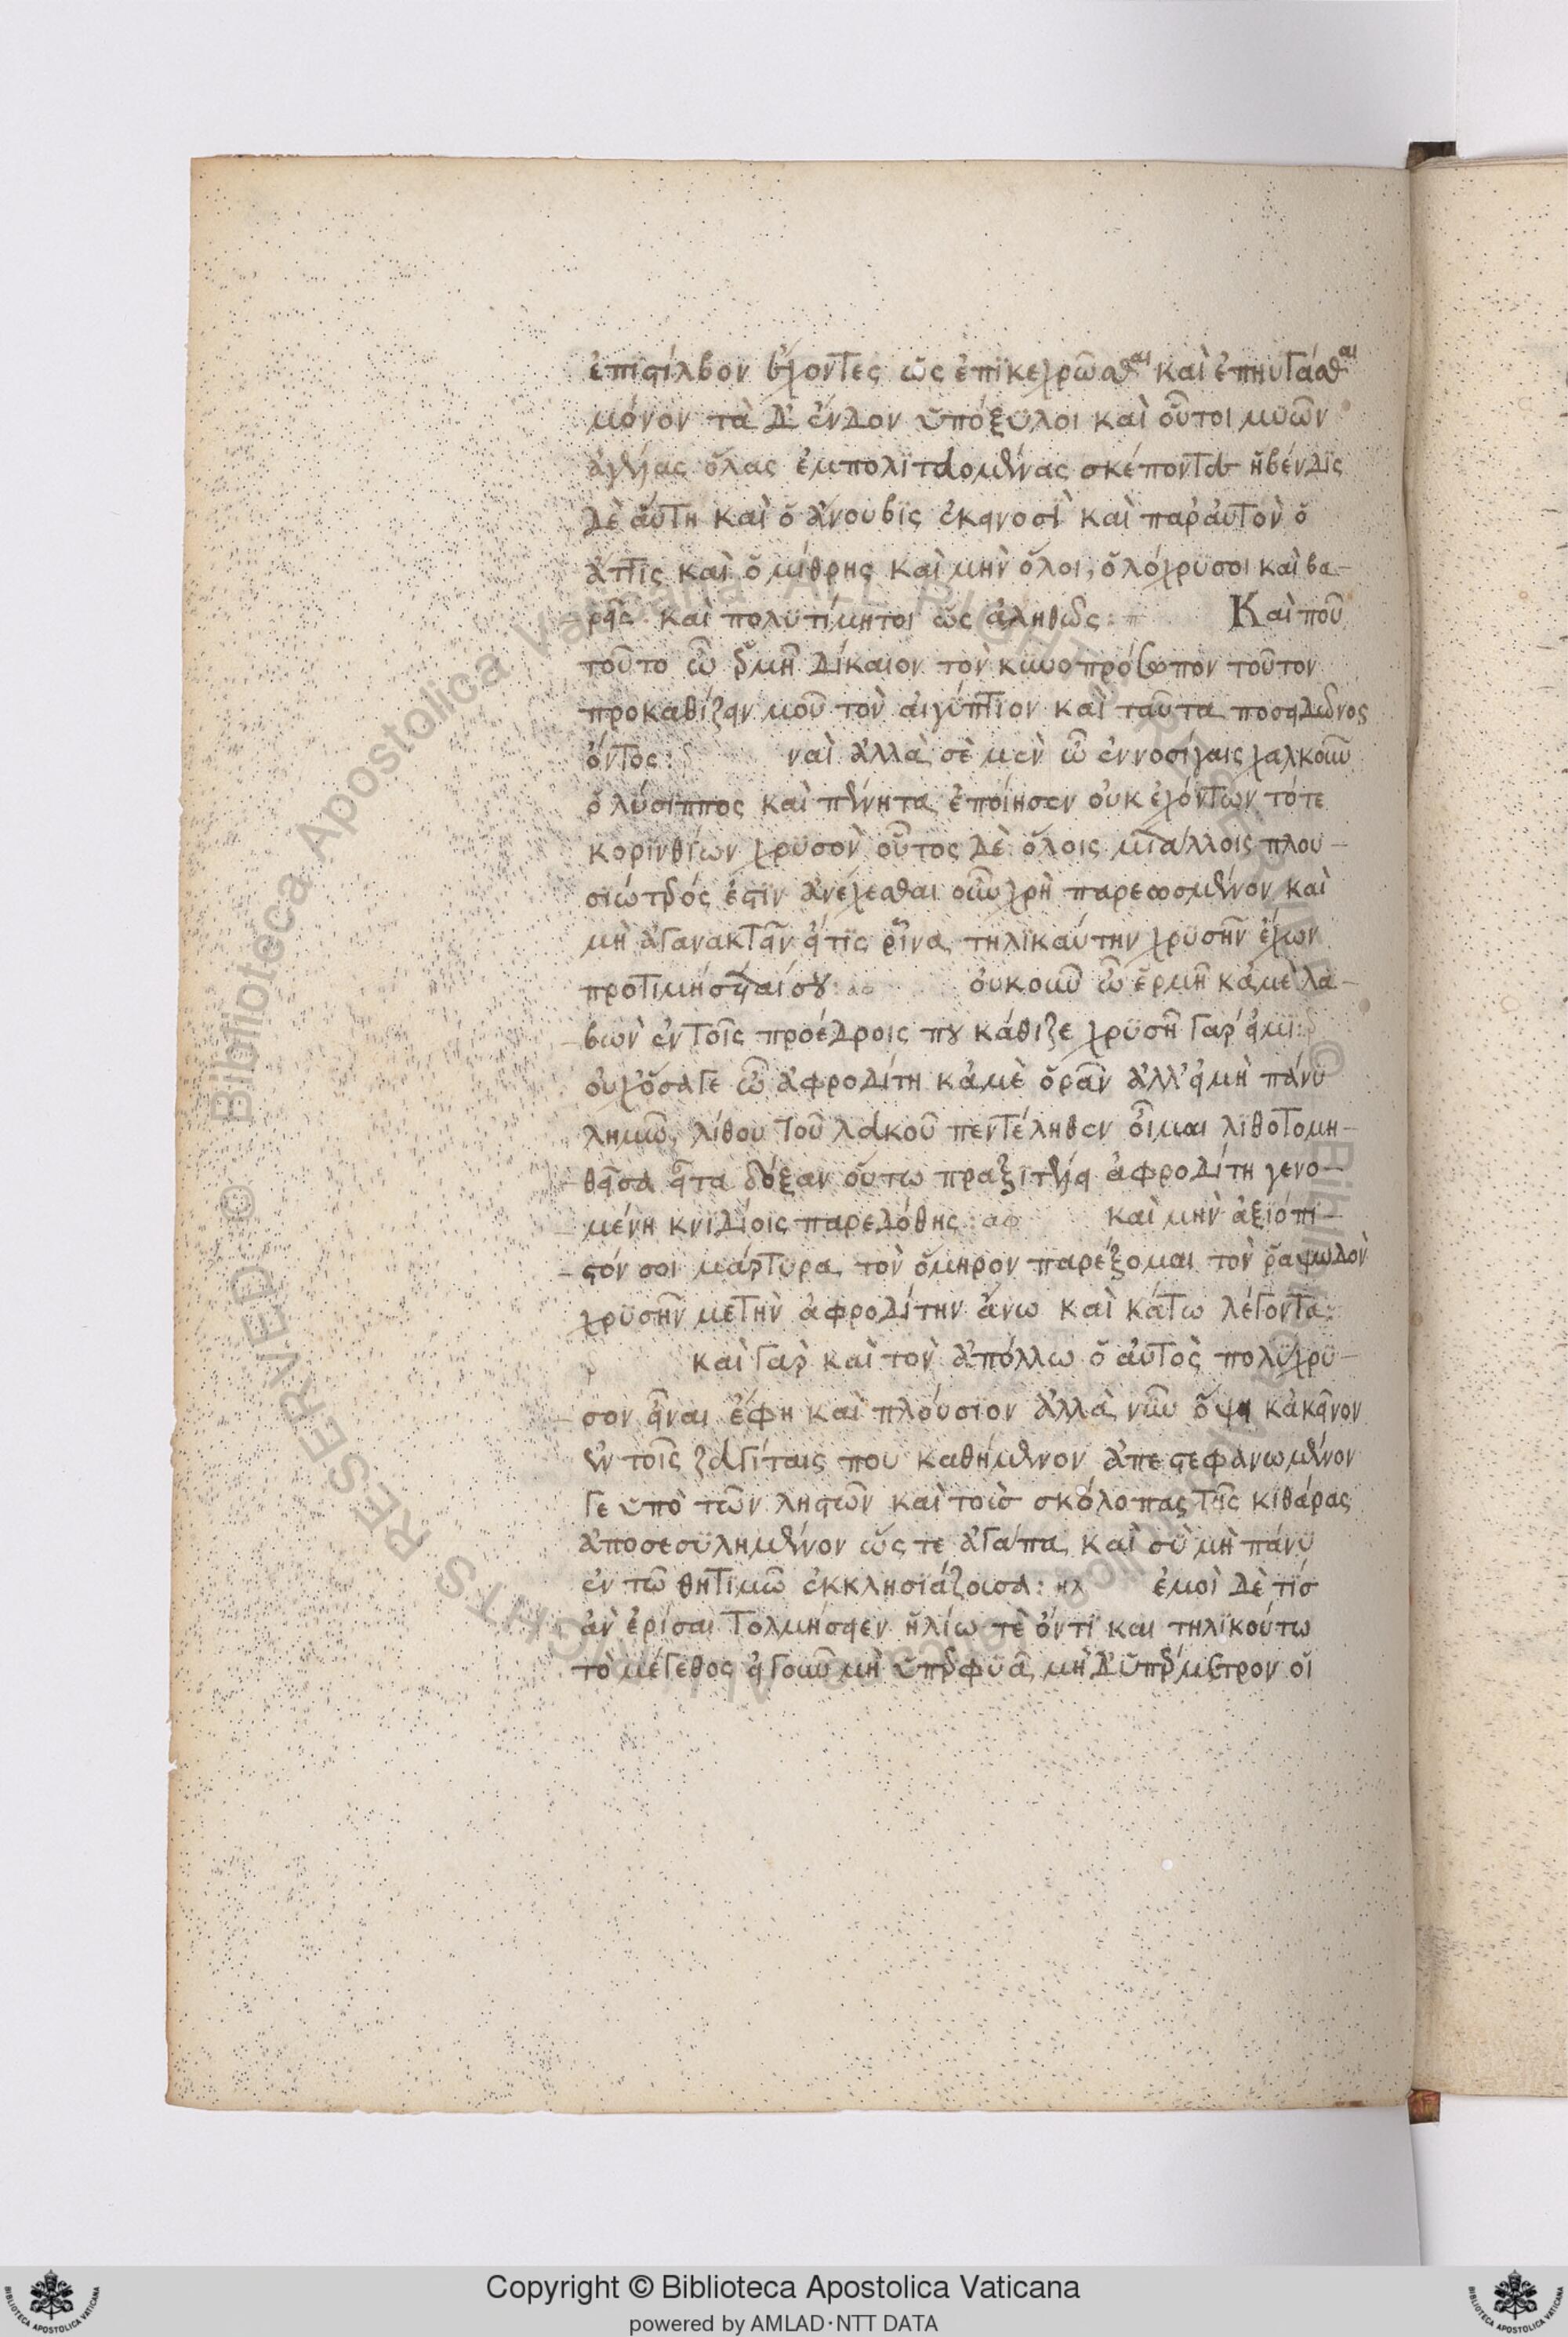 ἐπιστίλβον ἔχοντες ὡς ἐπικεχρῶσθαι καὶ ἐπηυγάσθαι
μόνον τὰ δ' ἔνδον ὑπόξυλοι καὶ οὗτοι μυῶν
ἀγέλας ὅλας ἐμπολιτευομένας σκέποντες ἡ βένδις
δὲ αὕτη καὶ ὁ ἄνουβις ἐκεινοσὶ καὶ παρ' αὐτὸν ὁ
ἄττις καὶ ὁ μίθρης καὶ μὴν ὅλοι, ὁλόχρυσοι καὶ βα-
ρεῖς καὶ πολυτίμητοι ὡς ἀληθῶς: Καὶ ποῦ
τοῦτο ὦ ἑρμῆ δίκαιον τὸν κυνοπρόσωπον τοῦτον
προκαθίζειν μοῦ τὸν αἰγύπτιον καὶ ταῦτα ποσειδῶνος
ὄντος: ναὶ ἀλλὰ σὲ μὲν ὦ ἐννοσίγαις χαλκοῦν
ὁ λύσιππος καὶ πένητα ἐποίησεν οὐκ ἐχόντων τότε
κορινθίων χρυσὸν οὗτος δὲ ὅλοις μετάλλοις πλου-
σιώτερός ἐστιν ἀνέχεσθαι οὖν χρὴ παρεωσμένον καὶ
μὴ ἀγανακτεῖν εἴ τις ῥῖνα τηλικαύτην χρυσῆν ἔχων
προτιμήσεταί σου: αφ οὐκοῦν ὦ ἑρμῆ κἀμὲ λα-
βὼν ἐν τοῖς προέδροις που κάθιζε χρυσῆ γάρ εἰμι:
οὐχ ὅσα γε ὦ ἀφροδίτη κἀμὲ ὁρᾶν ἀλλ' εἰ μὴ πάνυ
λημῶ, λίθου τοῦ λευκοῦ πεντέληθεν οἶμαι λιθοτομη-
θεῖσα εἶτα δόξαν οὕτω πραξιτέλει ἀφροδίτη γενο-
μένη κνιδίοις παρεδόθης: αφ καὶ μὴν ἀξιόπι-
στόν σοι μάρτυρα τὸν ὅμηρον παρέξομαι τὸν ῥαψωδὸν
χρυσῆν με τὴν ἀφροδίτην ἄνω καὶ κάτω λέγοντα:
καὶ γὰρ καὶ τὸν ἀπόλλω ὁ αὐτὸς πολύχρυ-
σον εἶναι ἔφη καὶ πλούσιον ἀλλὰ νῦν ὄψει κἀκεῖνον
ἐν τοῖς ζευγίταις που καθήμενον ἀπεστεφανωμένον
γε ὑπὸ τῶν ληστῶν καὶ τοὺσ σκόλοπας τῆς κιθάρας
ἀποσεσυλημένον ὥς τε ἀγάπα καὶ σὺ μὴ πάνυ
ἐν τῶ θητικῶ ἐκκλησιάζουσα: ηλ ἐμοὶ δὲ τίσ
ἂν ἐρίσαι τολμήσειεν ἡλίω τὲ ὄντι και τηλικούτω
τὸ μέγεθος εἰ γοῦν μὴ ὑπερφυᾶ μὴ δ' ὑπέρμετρον οἱ
Copyright © Biblioteca Apostolica Vaticana
powered by AMLAD·NTT DATA